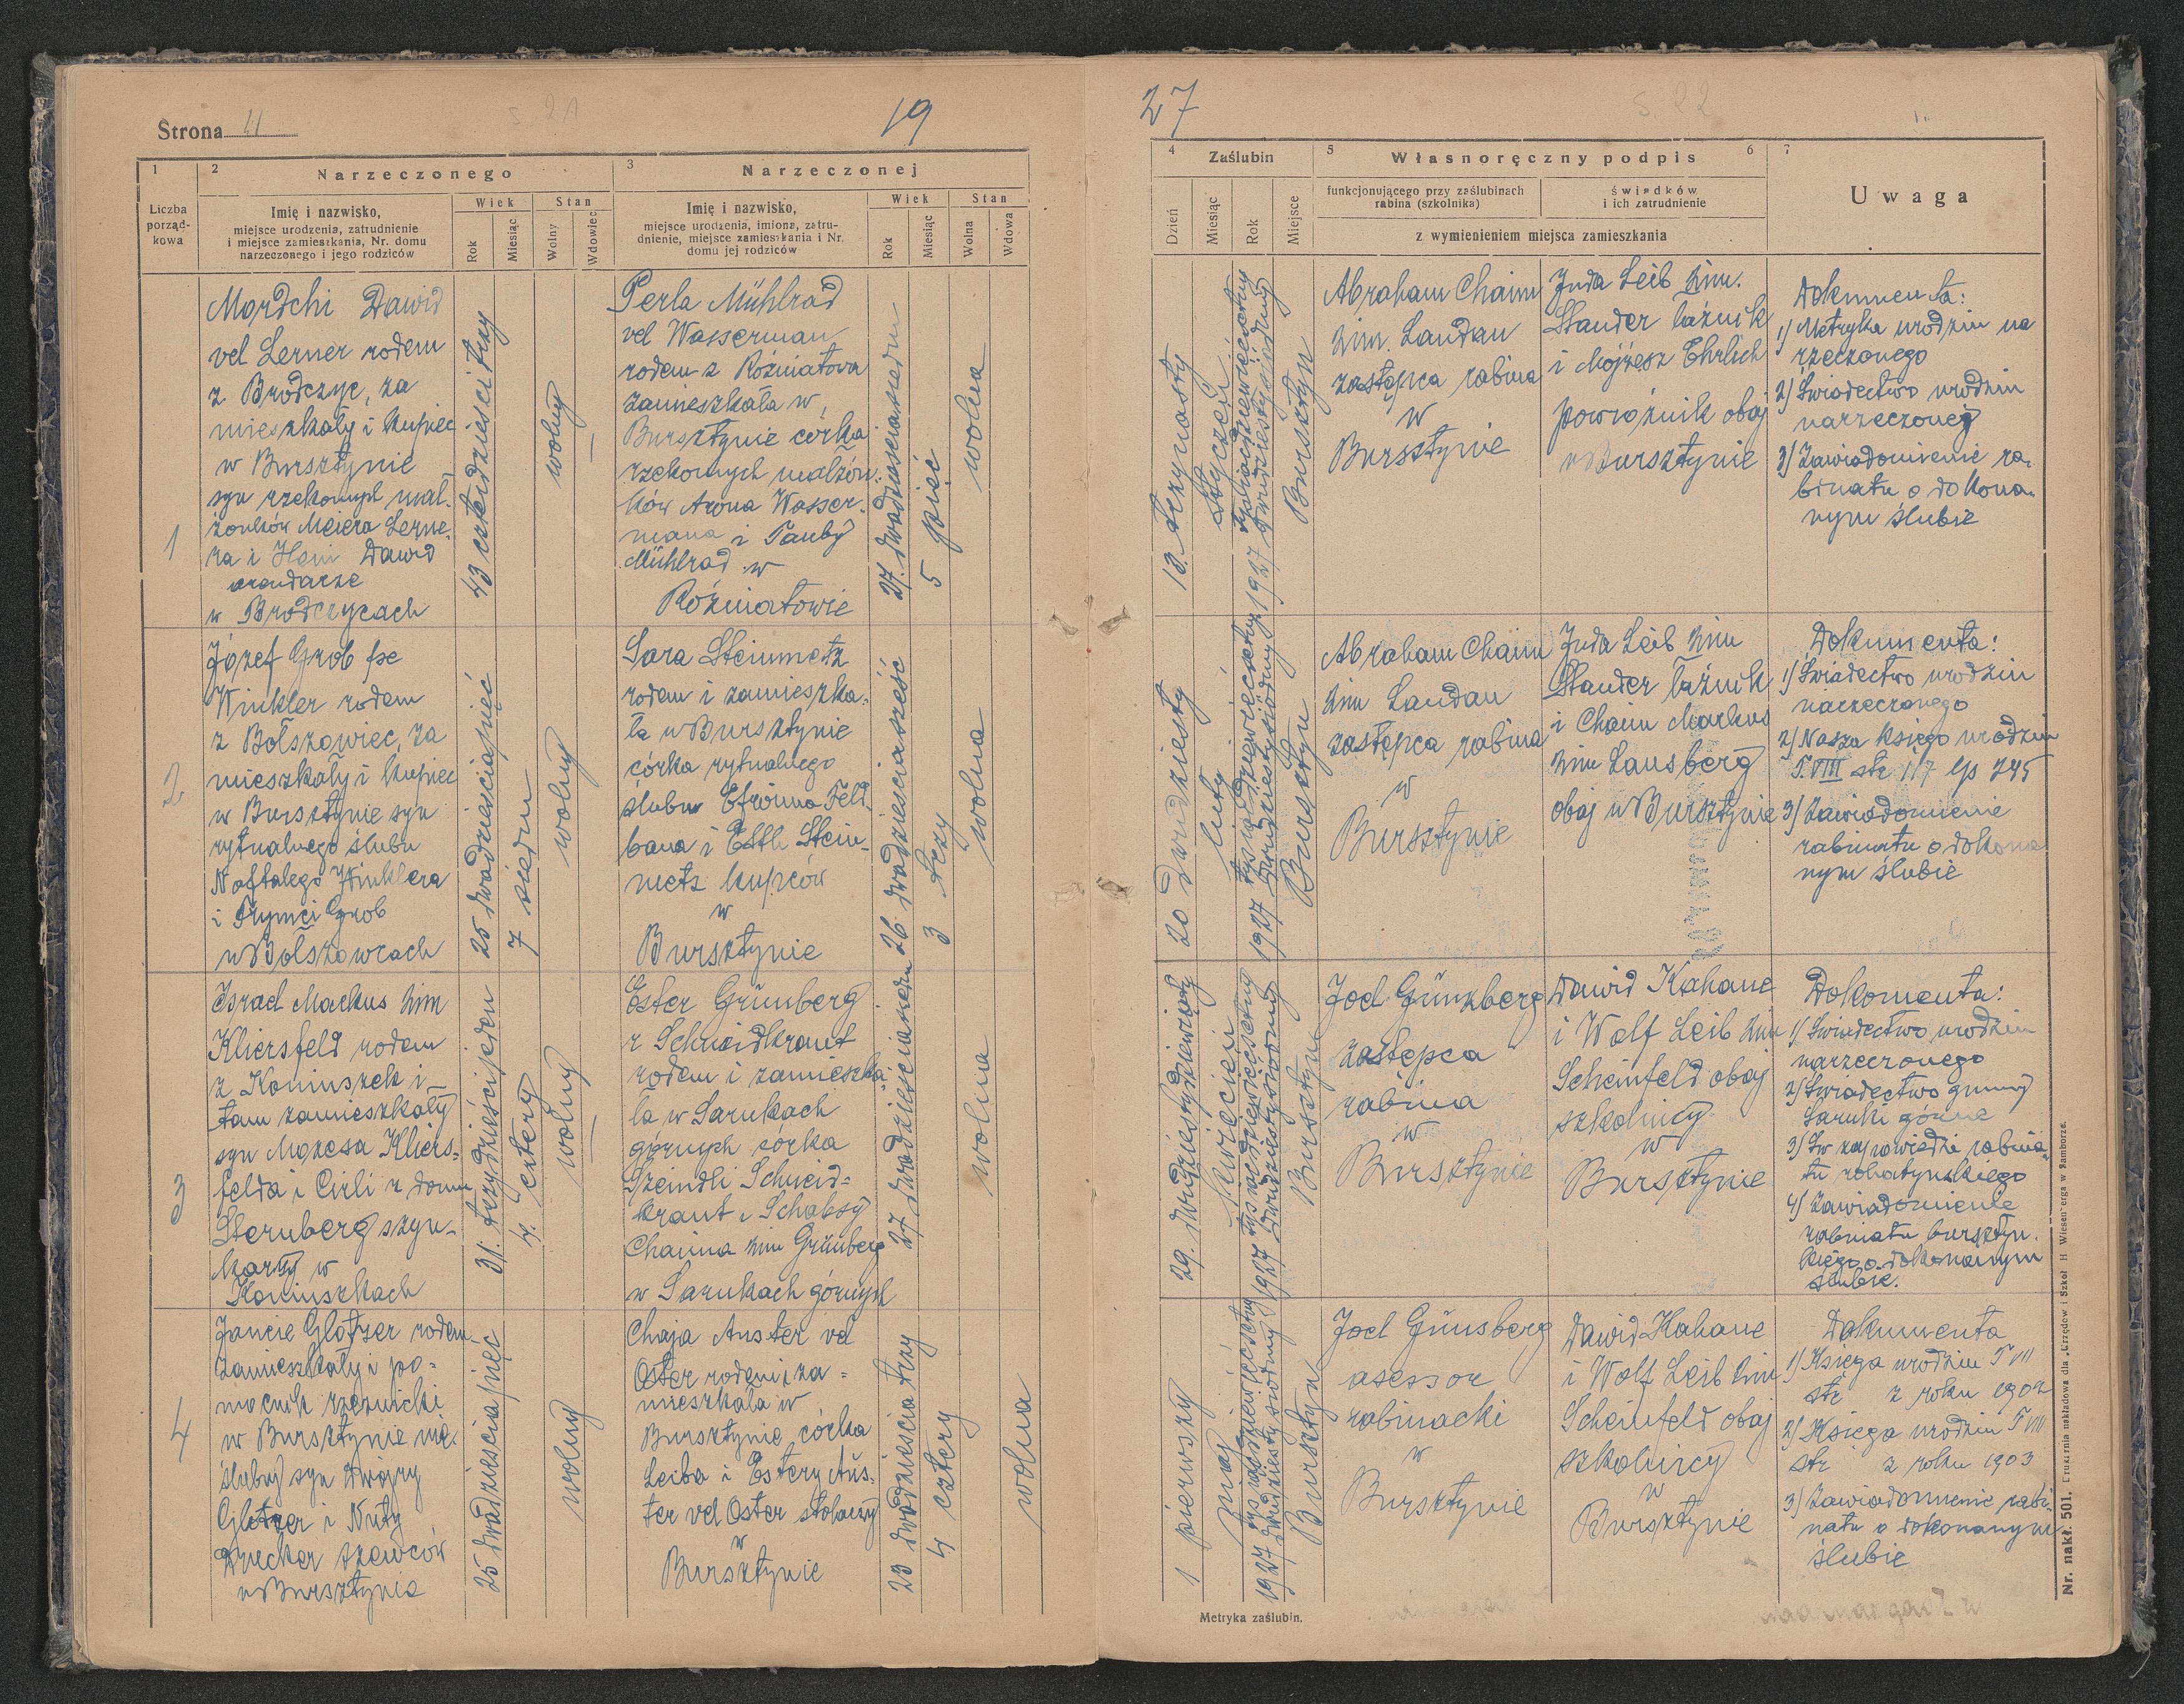 Strona 11
19
1
Liczba
porząd-
kowa
2
Narzeczonego
Imię i nazwisko,
miejsce urodzenia, zatrudnienie
i miejsce zamieszkania, Nr. domu
narzeczonego i jego rodziców
Wiek
Rok
Miesiąc
Stan
Wolny
Wdowiec
3
Narzeczonej
Imię i nazwisko,
miejsce urodzenia, imiona, zatru-
dnienie, miejsce zamieszkania i Nr.
domu jej rodziców
Wiek
Rok
Miesiąc
Stan
Wolna
Wdowa
1
Mordchi Dawid
vel Lerner rodem
z Brodczyc, za
mieszkały i kupiec
w Bursztynie
syn rzekomych mał-
żonków Meiera Lerne-
ra i Hani Dawid
arendarze
w Brodczycach
43 czterdzieści trzy
wolny
Perla Mühlrad
vel Wasserman
rodem z Rożniatowa
zamieszkała w
Bursztynie córka
rzekomych małżon-
ków Arona Wasser-
mana i Tauby
Mühlrad w
Rożniatowie
27. dwadzieścia siedm
5 pięć
wolna
2
Józef Grob fse
Winkler rodem
z Bołszowiec, za
mieszkały i kupiec
w Bursztynie syn
rytualnego ślubu
Naftalego Winklera
i Frymci Grob
w Bołszowcach
25 dwadzieścia pięć
7 siedm
wolny
Sara Steinmetz
rodem i zamieszka-
ła w Bursztynie
córka rytualnego
ślubu Efroima Feld
bana i Esth. Stein-
metz kupców
w
Bursztynie
26 dwadzieścia sześć
3 trzy
wolna
3
Israel Markus him
Kliersfeld rodem
z Koniuszek i
tam zamieszkały
syn Mozesa Kliers-
felda i Cirli z domu
Sternberg szyn-
karzy w
Koniuszkach
31. trzydzieści jeden
4. cztery
wolny
Ester Grünberg
r Schneidkraut
rodem i zamieszka-
ła w Sarnkach
górnych córka
Szeindli Schneid-
kraut i Schabsy
Chaima him Grünberg
w Sarnkach górnych
27 dwadzieścia siedm
wolna
4
Jancie Glotzer rodem
zamieszkały i po-
mocnik rzeźnicki
w Bursztynie nie-
ślubny syn Dwojry
Glotzer i Nuty
Drucker szewców
w Bursztynie
25 dwadzieścia pięć
wolny
Chaja Auster vel
Oster rodem i za-
mieszkała w
Bursztynie córka
Leiba i Estery Aus-
ter vel Oster stolarzy
w
Bursztynie
23 dwadzieścia trzy
4 cztery
wolna
27
4
Zaślubin
Dzień
Miesiąc
Rok
Miejsce
5
Własnoręczny podpis
6
funkcjonującego przy zaślubinach
rabina (szkolnika)
świadków
i ich zatrudnienie
z wymienieniem miejsca zamieszkania
7
Uwaga
13. trzynasty
styczeń
1927 tysiącdziewięćsetny
dwudziestysiódmy
Bursztyn
Abraham Chaim
him. Landau
zastępca rabina
w
Bursztynie
Juda Leib him.
Stander łaźnik
i Mojżesz Ehrlich
powroźnik obaj
w Bursztynie
Dokumenta:
1) Metryka urodzin na
rzeczonego
2) Świadectwo urodzin
narzeczonej
3) Zawiadomienie ra-
binatu o dokona-
nym ślubie
20 dwudziesty
luty
1927 tysiącdziewięćsetny
dwudziestysiódmy
Bursztyn
Abraham Chaim
him Landau
zastępca rabina
w
Bursztynie
Juda Leib him
Stander łaźnik
i Chaim Markus
him Lansberg
obaj w Bursztynie
Dokumenta:
1) Świadectwo urodzin
narzeczonego
2) Nasza księga urodzin
T. VIII str 117 lp 745
3) Zawiadomienie
rabinatu o dokona
nym ślubie
29. dwudziestydziewiąty
kwiecień
1927 tysiącdziewięćsetny
dwudziestysiódmy
Bursztyn
Joel Günzberg
zastępca
rabina
w
Bursztynie
Dawid Kahane
i Wolf Leib him
Scheinfeld obaj
szkolnicy
w
Bursztynie
Dokomenta:
1) Świadectwo urodzin
narzeczonego
2) Świadectwo gminy
Sarnki górne
3) Św zapowiedzi rabina-
tu rohatyńskiego
4) Zawiadomienie
rabinatu bursztyń-
kiego o dokonanym
ślubie.
1 pierwszy
maj
1927 tysiącdziewięćsetny
dwudziesty siódmy
Bursztyn
Joel Günsberg
asessor
rabinacki
w
Bursztynie
Dawid Kahane
i Wolf Leib him
Scheinfeld obaj
szkolnicy
w
Bursztynie
Dokumenta
1) Księga urodzin T VII
str z roku 1902
2) Księga urodzin T VIII
str z roku 1903
3) Zawiadomienie rabi-
natu o dokonanym
ślubie
Metryka zaślubin.
Nr. nakł. 501. Drukarnia nakładowa dla „Urzędów i Szkół H Wiesenberga w Samborze.